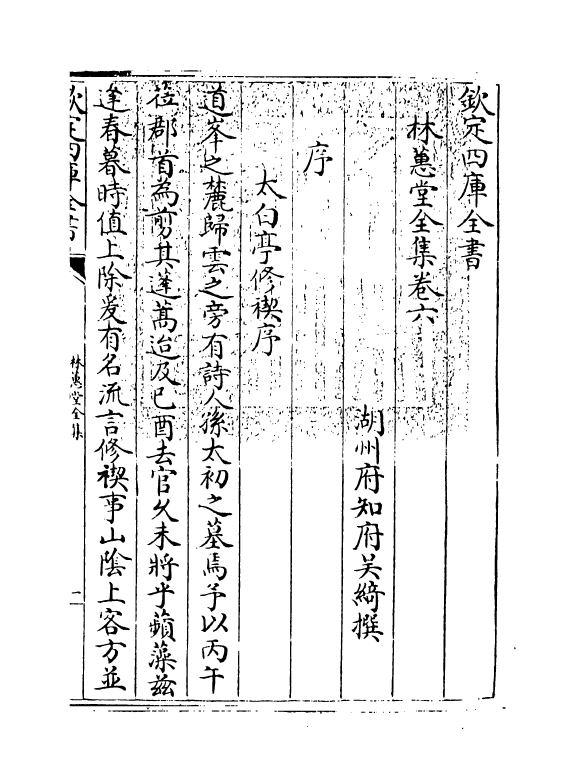 欽定四庫全書
林蕙堂全集卷六
湖州府知府吴綺撰
序
太白亭修禊序
道峯之麓歸雲之旁有詩人孫太初之墓焉予以丙午
莅郡首為剪其蓬蒿迨及已酉去官久未將乎蘋藻兹
逢春暮時值上除爰有名流言修禊事山隂上客方並
欽定四庫全書
林蕙堂全集